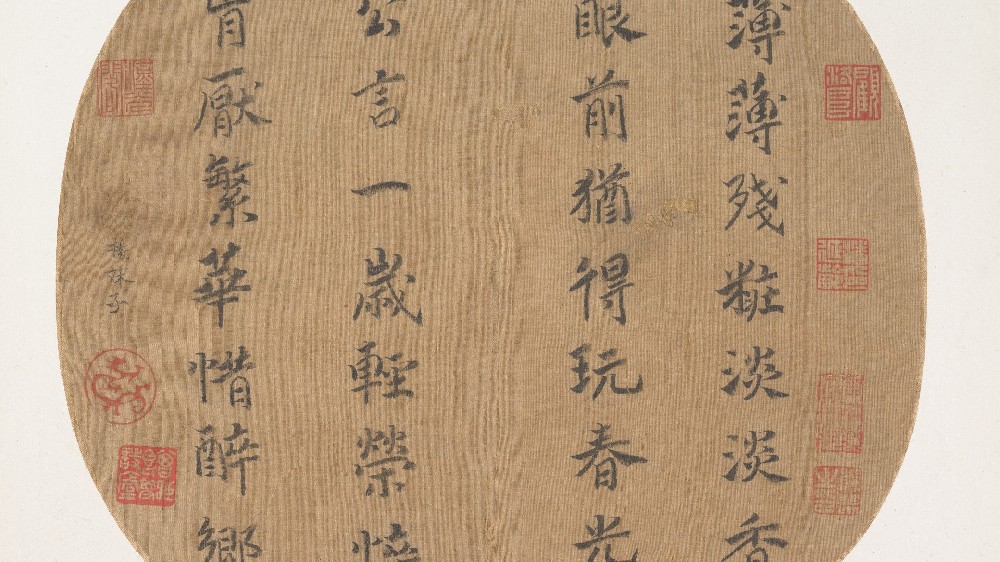 薄薄殘粧淡淡香
眼前猶得玩春光
公言一歲輕榮悴
肯厭繁華惜醉鄉
楊妹子